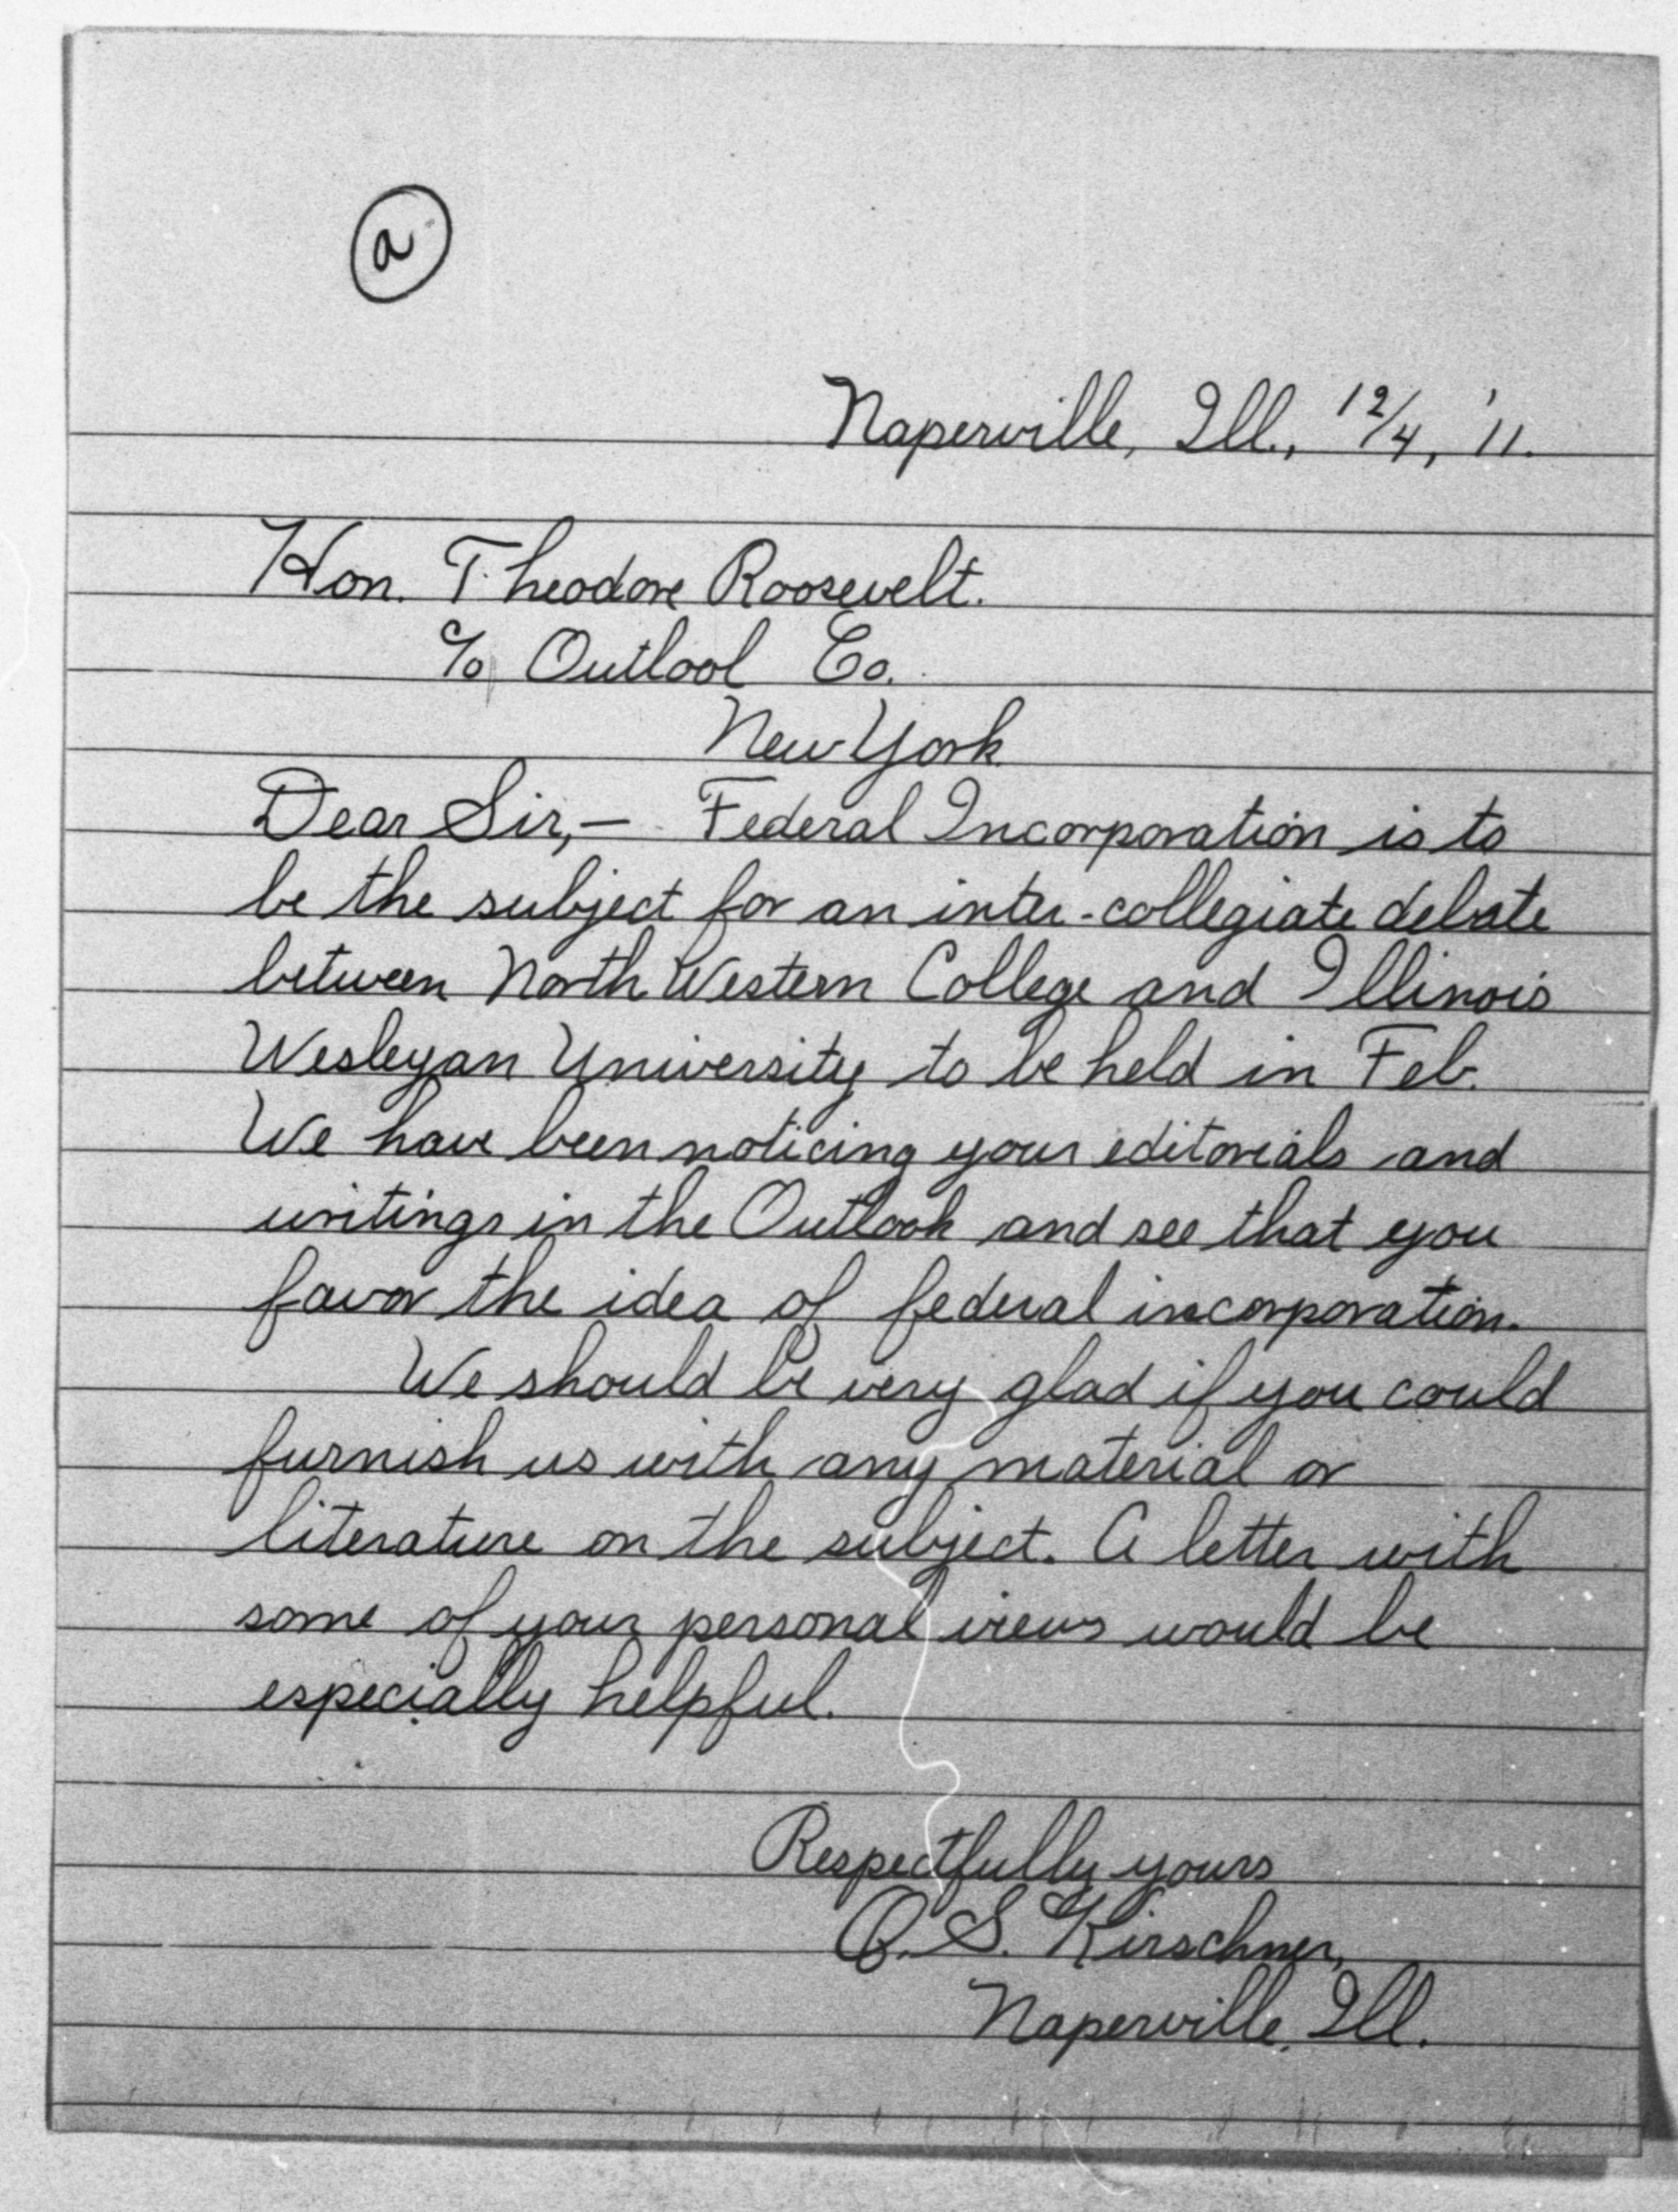 a
Naperville, Ill., 12/4, '11.
Hon. Theodore Roosevelt.
c/o Outlool Co.
New York
Dear Sir,— Federal Incorporation is to
be the subject for an inter-collegiate debate
between North Western College and Illinois
Wesleyan University to be held in Feb.
We have been noticing your editorials and
writings in the Outlook and see that you
favor the idea of federal incorporation.
We should be very glad if you could
furnish us with any material or
literature on the subject. A letter with
some of your personal views would be
especially helpful.
Respectfully yours
S. Kirschner,
Naperville, Ill.